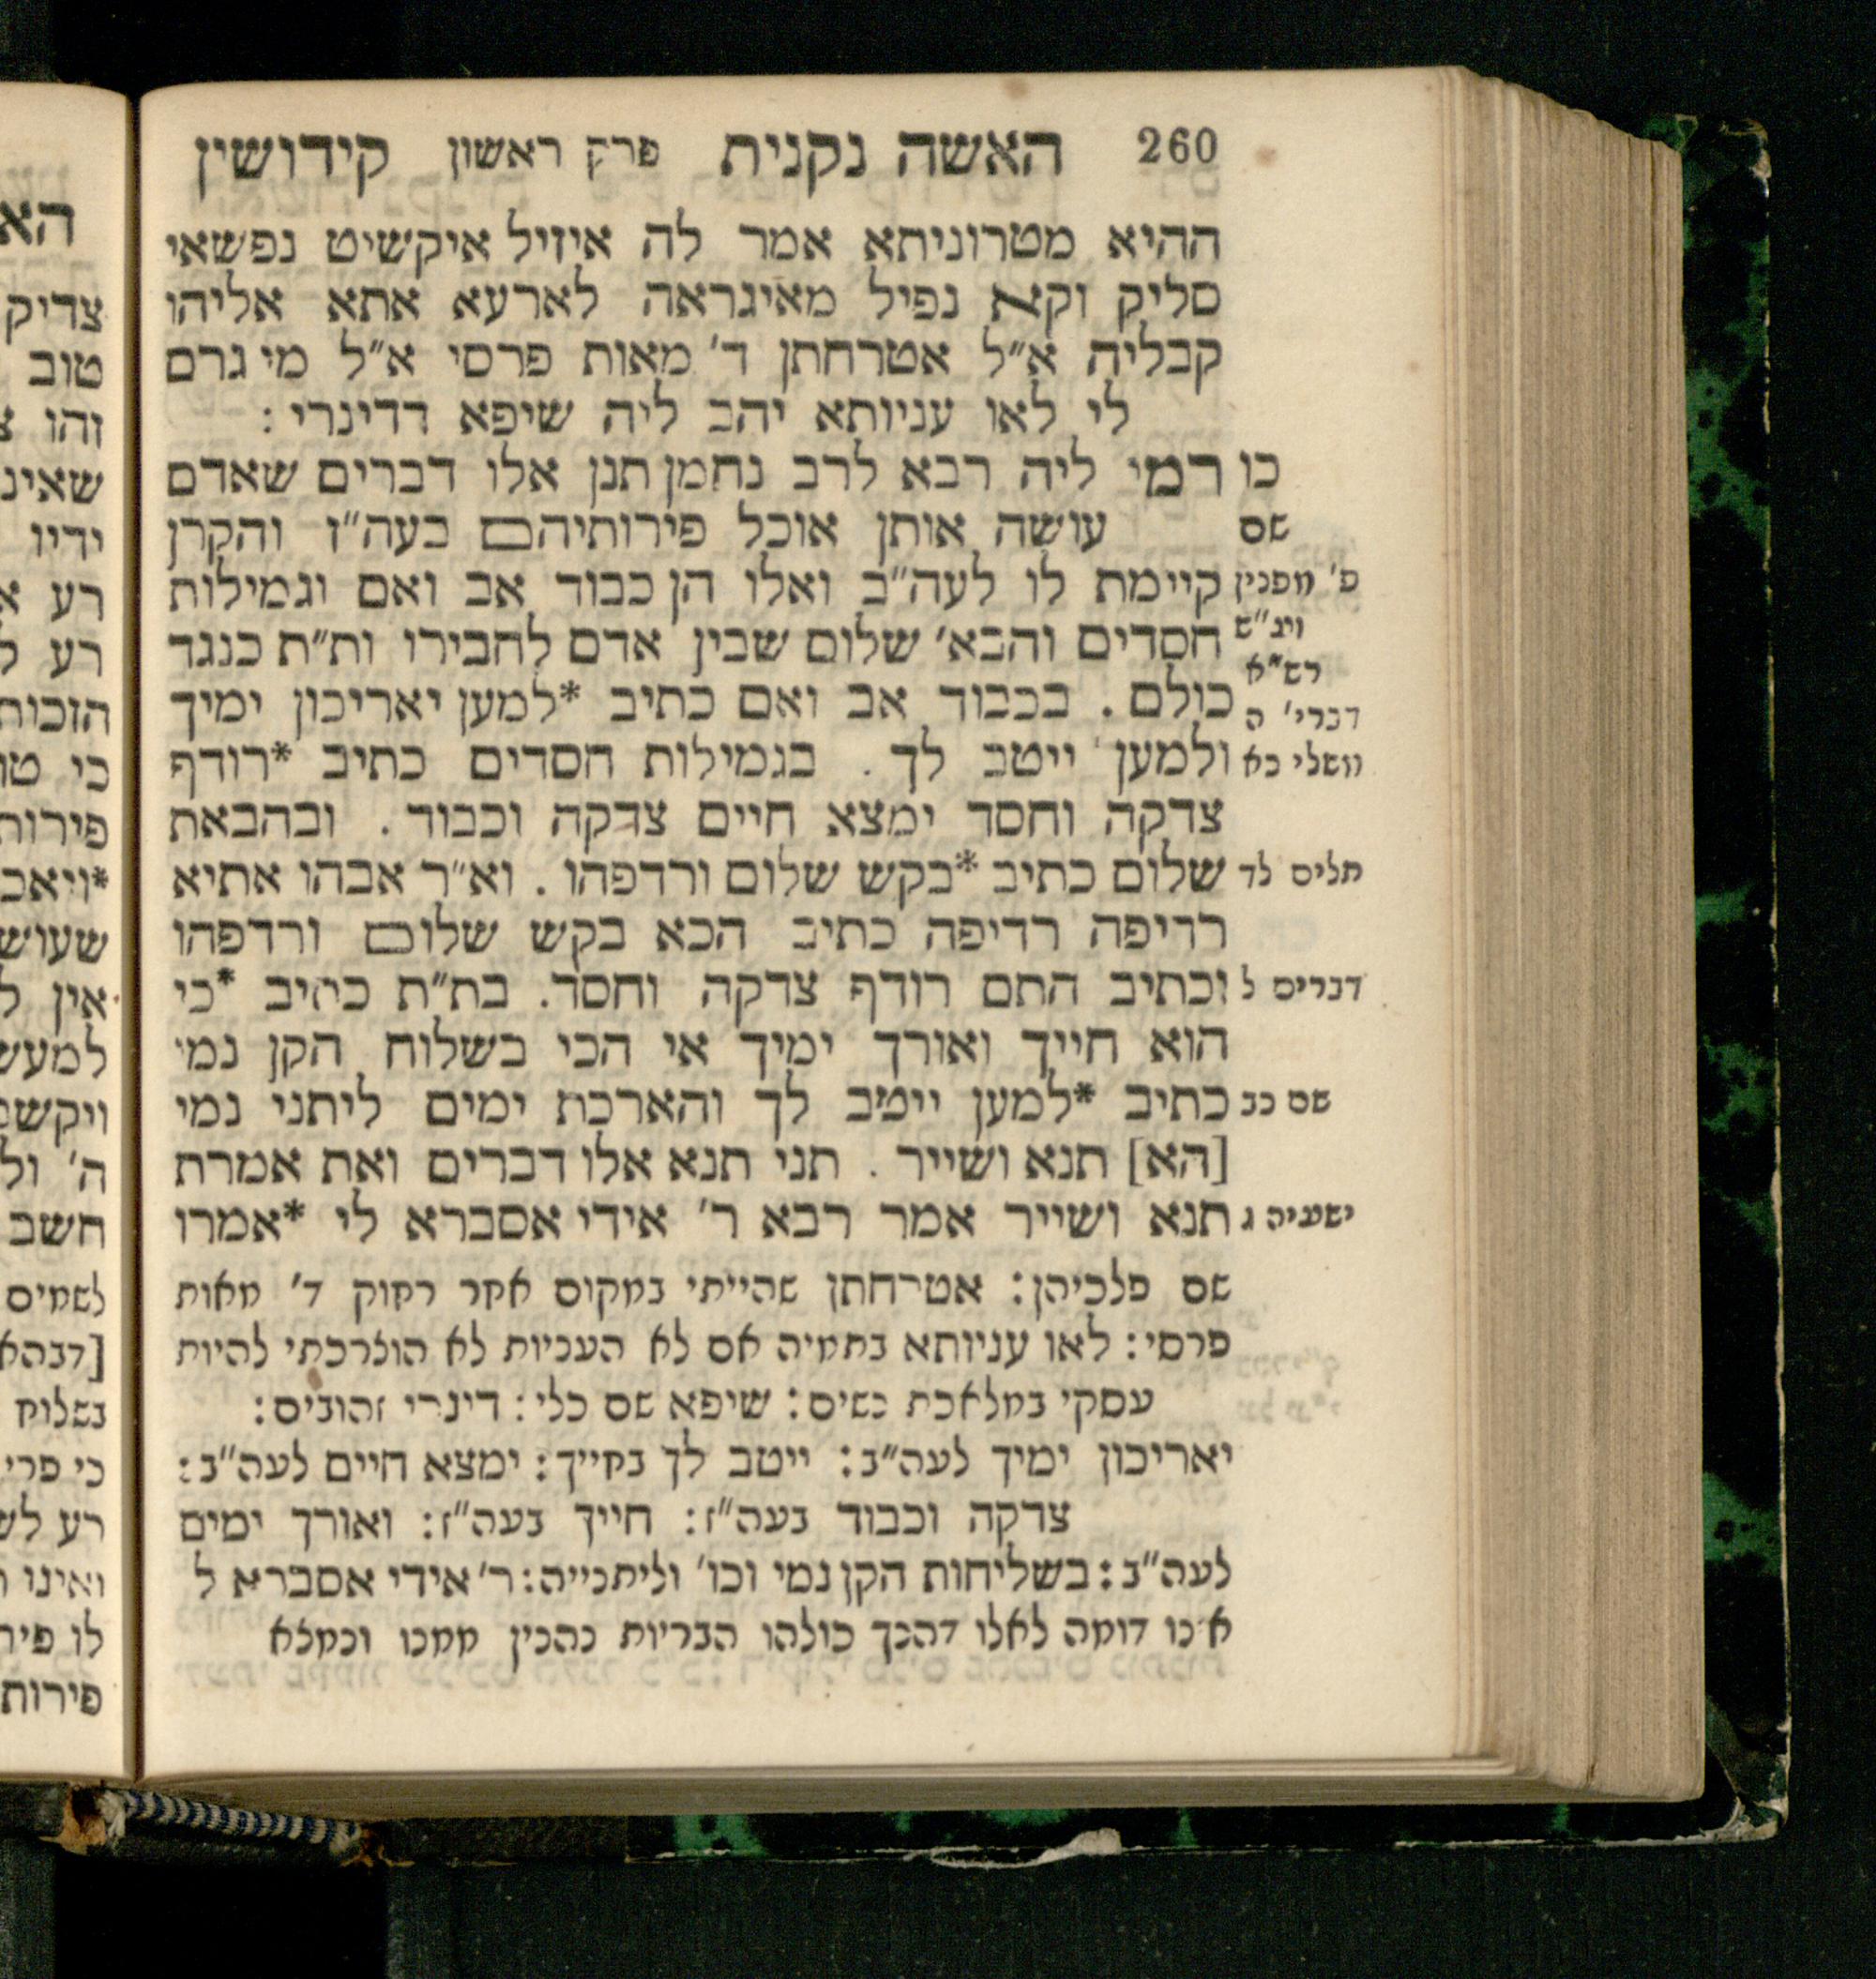 260 האשה נקנית פרק ראשון קידושין
ההיא מטרוניתא אמר לה איזיל איקשיט נפשאי
סליק וקא נפיל מאיגראה לארעא אתא אליהו
קבליה א״ל אטרחתן ד׳ מאות פרסי א״ל מי גרם
לי לאו עניותא יהב ליה שיפא דדינרי :
כו רמי ליה רבא לרב נחמן תנן אלו דברים שאדם
שם עושה אותן אוכל פירותיהם בעה״ז והקרן
פ׳ מפנין קיימת לו לעה״ב ואלו הן כבוד אב ואם וגמילות
חסדים והבא׳ שלום שבין אדם לחבירו ות״ת כנגד
רש״א
דברי׳ ה כולם . בכבוד אב ואם כתיב *למען יאריכון ימיך
משלי כא ולמען ייטב לך . בגמילות חסדים כתיב *רודף
צדקה וחסד ימצא חיים צדקה וכבוד . ובהבאת
תלים לד שלום כתיב *בקש שלום ורדפהו . וא״ר אבהו אתיא
רדיפה רדיפה כתיב הכא בקש שלום ורדפהו
דברים ל וכתיב התם רודף צדקה וחסד. בת״ת כתיב *כי
הוא חייך ואורך ימיך אי הכי בשלוח הקן נמי
שם כב כתיב *למען ייטב לך והארכת ימים ליתני נמי
[הא] תנא ושייר . תני תנא אלו דברים ואת אמרת
ישעיה ג תנא ושייר אמר רבא ר׳ אידי אסברא לי *אמרו
שם פלכיהן: אטרחתן שהייתי במקום אחר רחוק ד׳ מאות
פרסי: לאו עניותא בתמיה אם לא העניות לא הוצרכתי להיות
עסקי במלאכת נשים: שיפא שם כלי: דינרי זהובים:
יאריכון ימיך לעה״ב: ייטב לך בחייך: ימצא חיים לעה״ב:
צדקה וכבוד בעה״ז: חייך בעה״ז: ואורך ימים
לעה״ב: בשליחות הקן נמי וכו׳ וליתנייה: ר׳ אידי אסברא ל
אינו דומה לאלו דהנך כולהו הבריות נהנין ממנו ונמצא